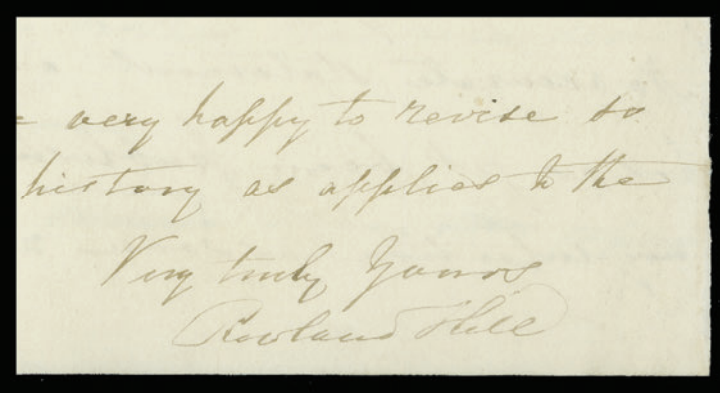 very happy to revise so
history as applies to the
Very truly Yours
Rowland Hill